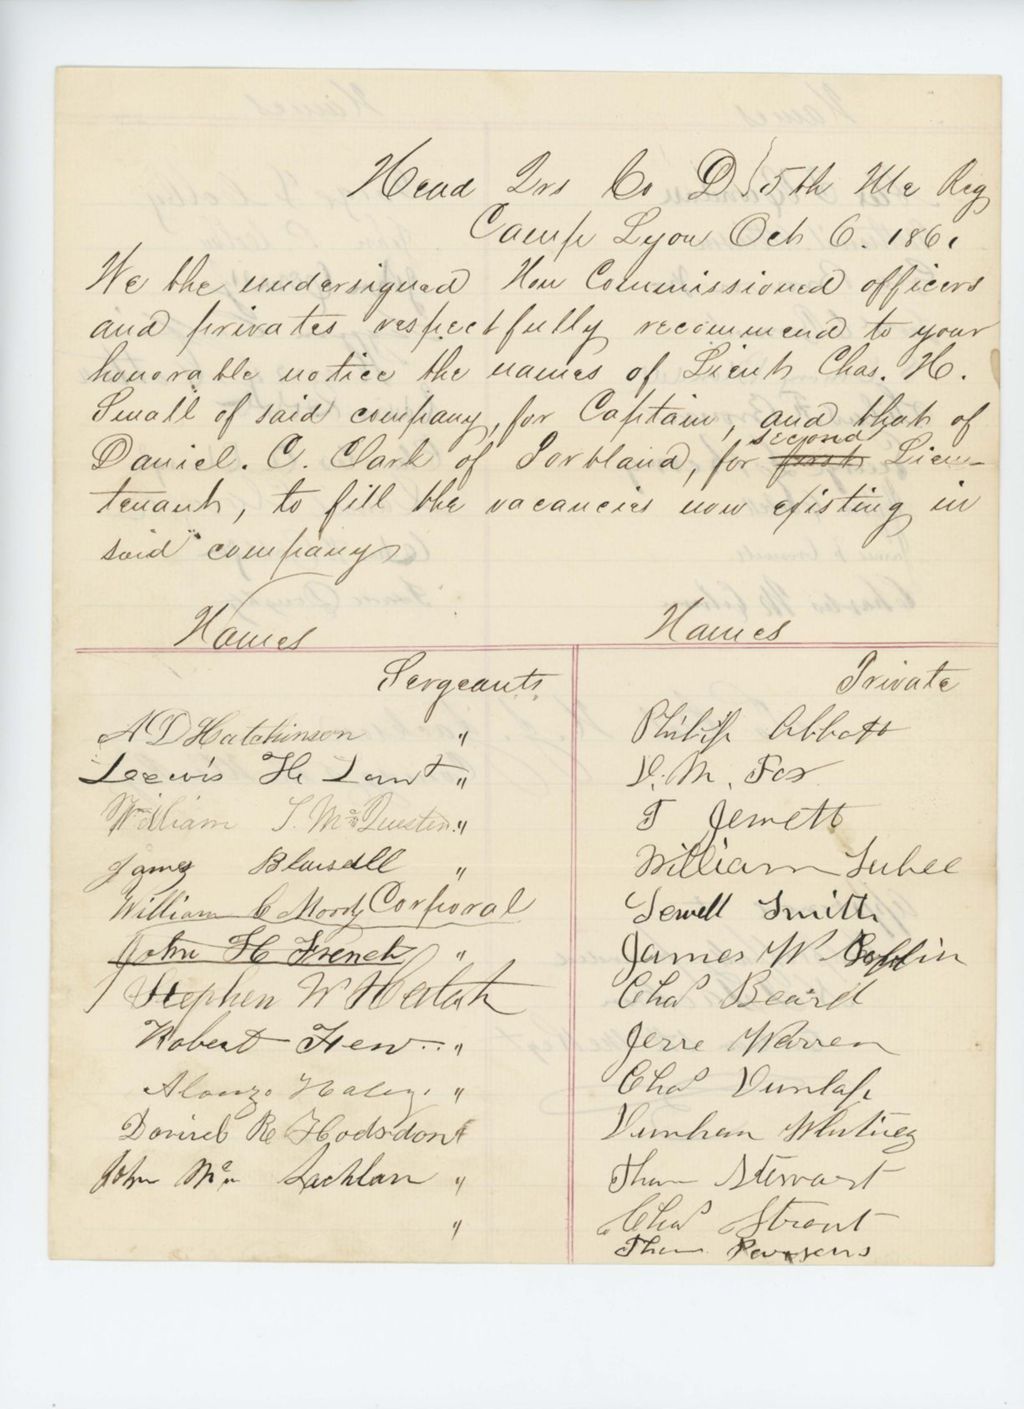 Head Qrs Co D 5th Me Reg
Camp Lyon Oct 6. 1861
We the undersigned Non Commissioned officers
and privates respectfully recommend to your
honorable notice the names of Lieut Chas. H.
Small of said company, for Captain, and that of
Daniel. C. Clark of Portland, for first second Lieu-
tenant, to fill the vacancies now existing in
said company
Names
Sergeants
A D Hutchinson "
Lewis H Lunt "
William S. McQuestin "
James Blaisdell "
William C Moody Corporal
John H French "
Stephen W Hatch
Robert Hew "
Alonzo Haley. "
Daniel R Hodsdon "
John Mc Lachlan "
"
Names
Private
Philip Abbott
V. M. Fox
T Jewett
William Lubee
Sewell Smith
James W Cofflin
Chas Beard
Jerre Warren
Chas Dunlap
Durham Whitney
Thom Stewart
Chas Strout
Thom Parsons